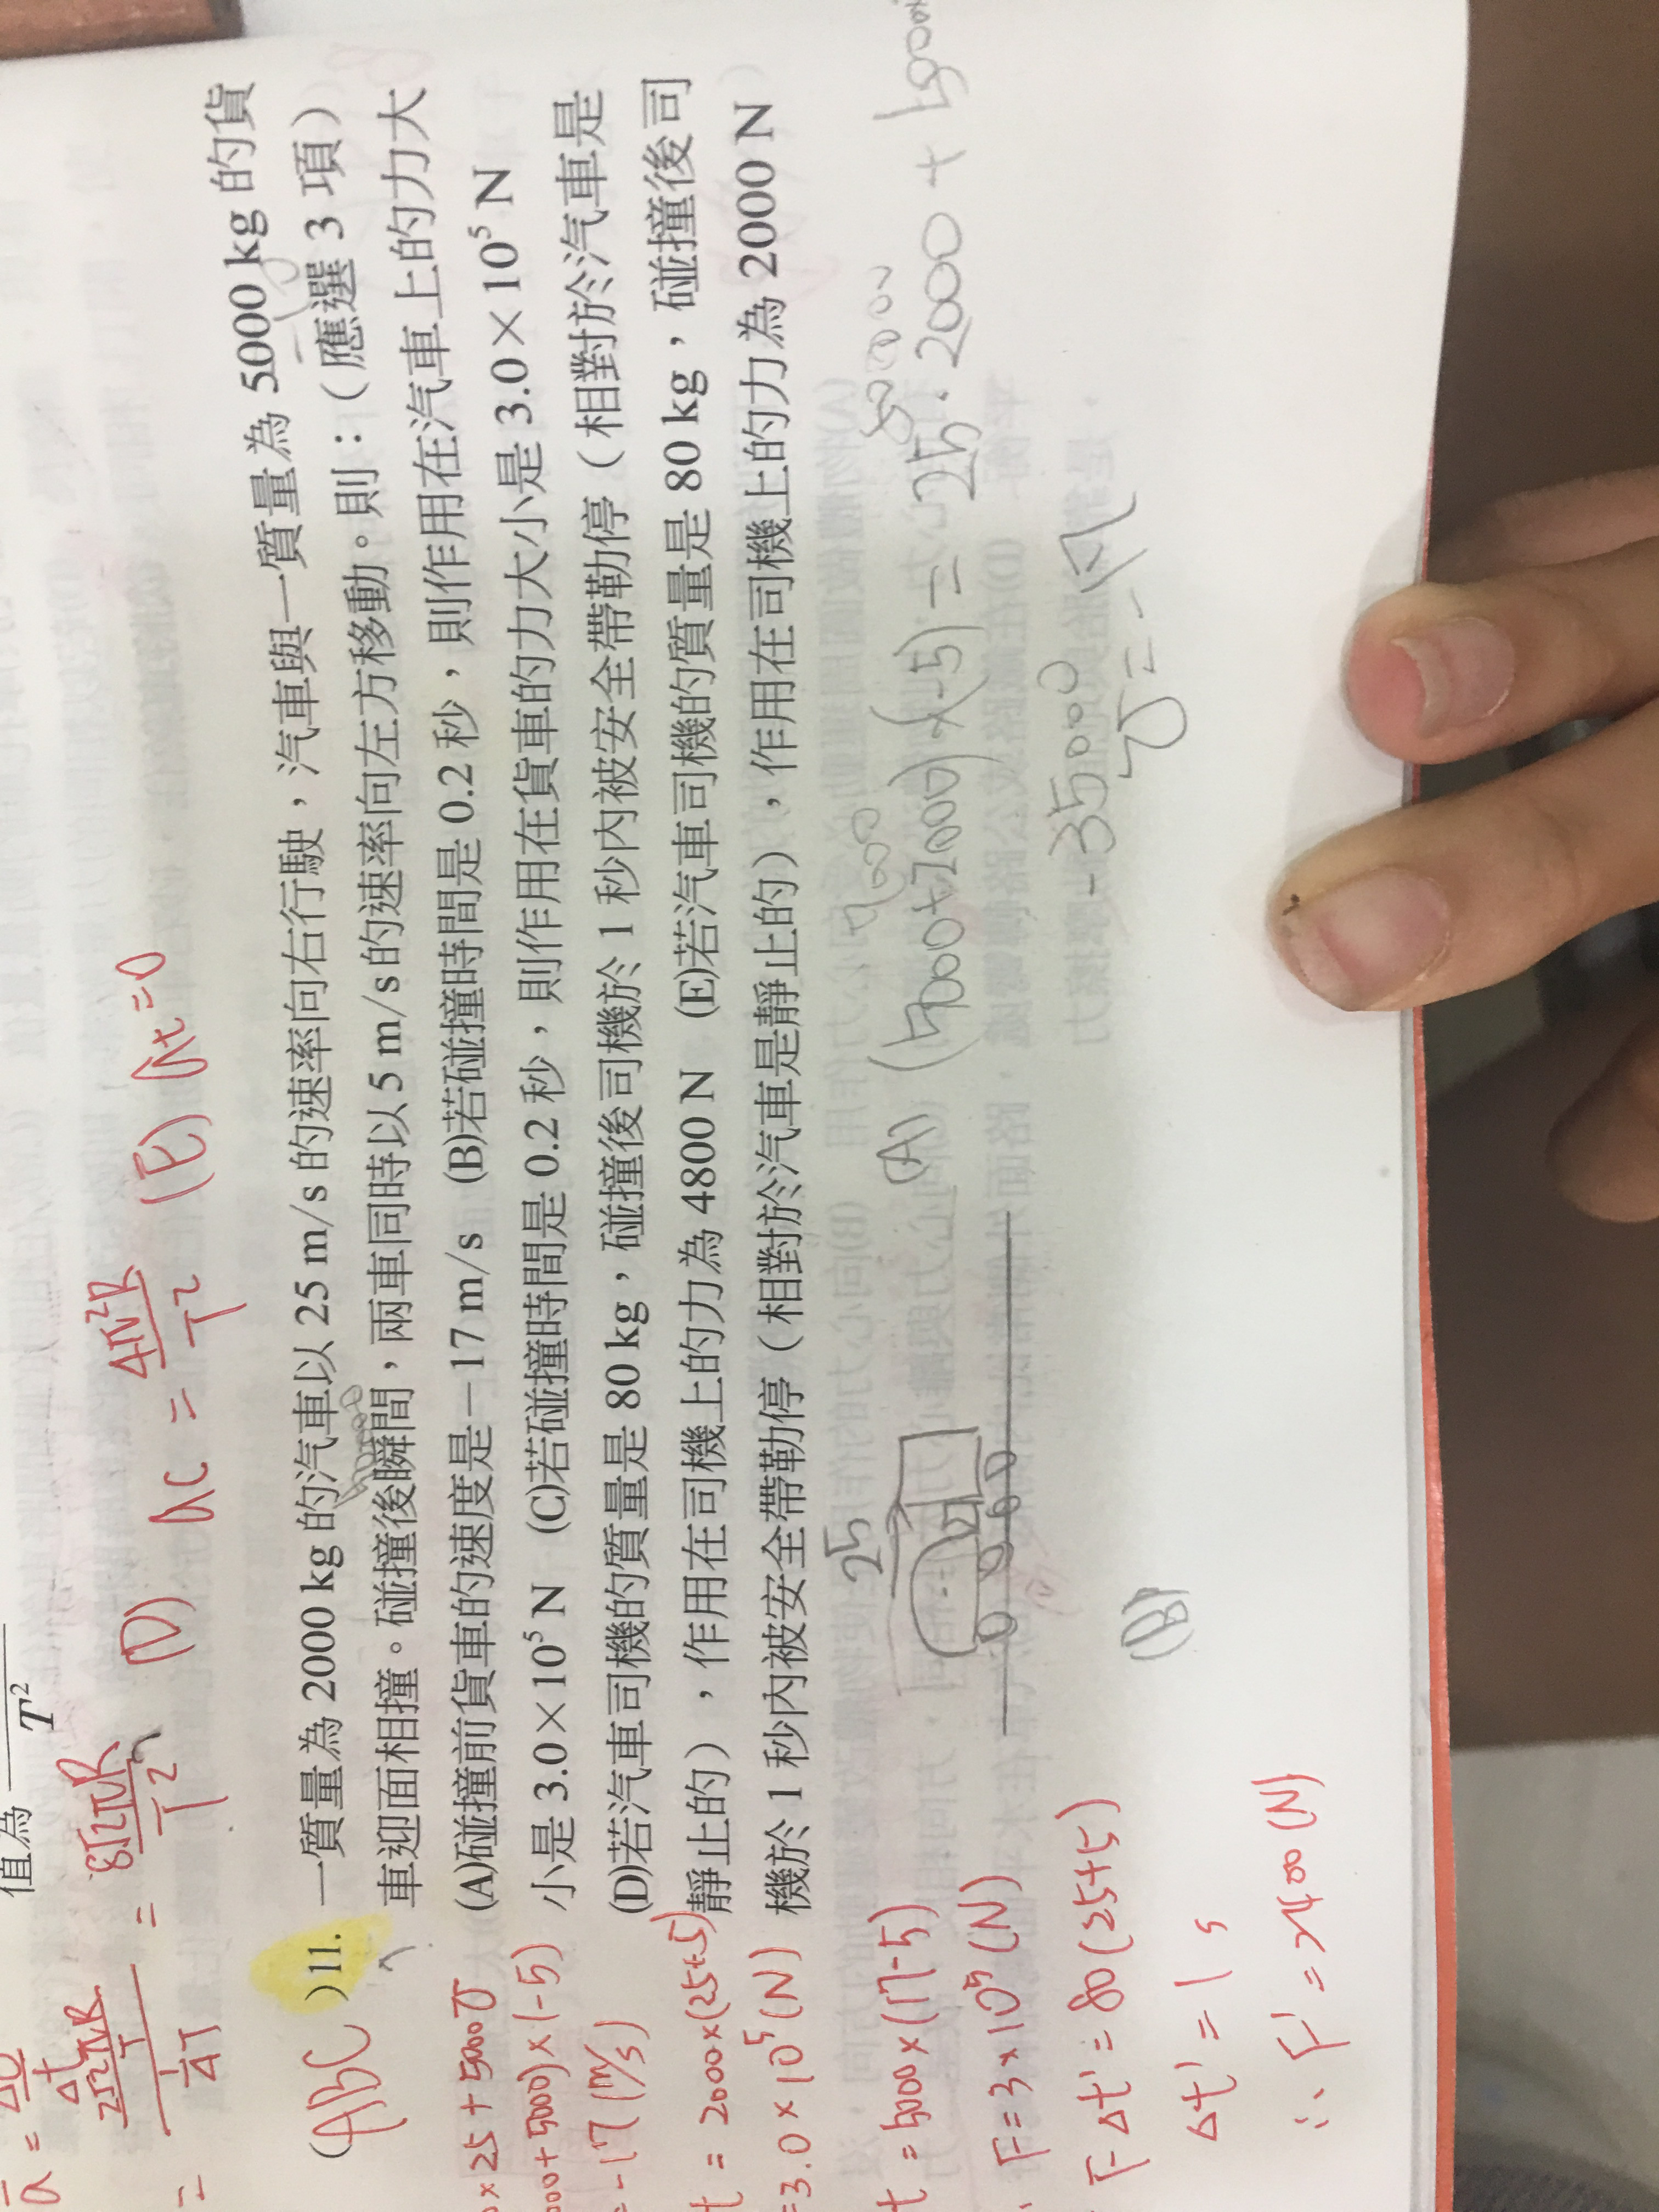 值為 T²
8√2πR
T²
(D) ac = 4π²R
T²
(E) at = 0
(ABC) 11. 一質量為 2000 kg 的汽車以 25 m/s 的速率向右行駛,汽車與一質量為 5000 kg 的貨
車迎面相撞。碰撞後瞬間,兩車同時以 5 m/s 的速率向左方移動。則:(應選 3 項)
(A)碰撞前貨車的速度是-17 m/s (B)若碰撞時間是 0.2 秒,則作用在汽車上的力大
小是 3.0×10⁵ N (C)若碰撞時間是 0.2 秒,則作用在貨車的力大小是 3.0×10⁵ N
(D)若汽車司機的質量是 80 kg,碰撞後司機於 1 秒內被安全帶勒停(相對於汽車是
靜止的),作用在司機上的力為 4800 N (E)若汽車司機的質量是 80 kg,碰撞後司
機於 1 秒內被安全帶勒停(相對於汽車是靜止的),作用在司機上的力為 2000 N
×25 + 5000 v
000+5000)×(-5)
= -17 (m/s)
t = 2000×(25+5)
=3.0×10⁵ (N)
t = 5000×(17-5)
F = 3×10⁵ (N)
F Δt' = 80(25+5)
Δt' = 1 s
∴ F' = 2400 (N)
25
(A) (5000+2000)×(-5) = 25·2000 +
7000
-35000
(B)